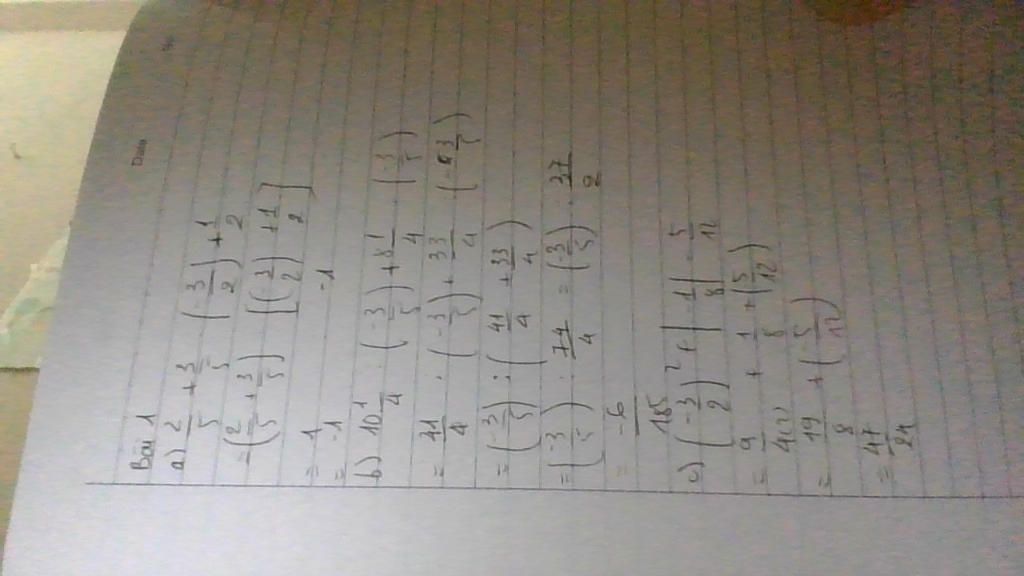 Date
No
Bài 1
a) 2/5 + 3/5 . (-3/2) + 1/2
= (2/5 + 3/5) . [(-3/2) + 1/2]
= 1 . -1
= -1
b) 10 1/4 : (-3/5) + 8 1/4 : (-3/5)
= 41/4 : (-3/5) + 33/4 : (-3/5)
= (-3/5) : (41/4 + 33/4)
= (-3/5) : 74/4 = (-3/5) : 37/2
= -6/185
c) (-3/2)² + |-1/8| - 5/12
= 9/4 + 1/8 + (-5/12)
= 19/8 + (-5/12)
= 47/24